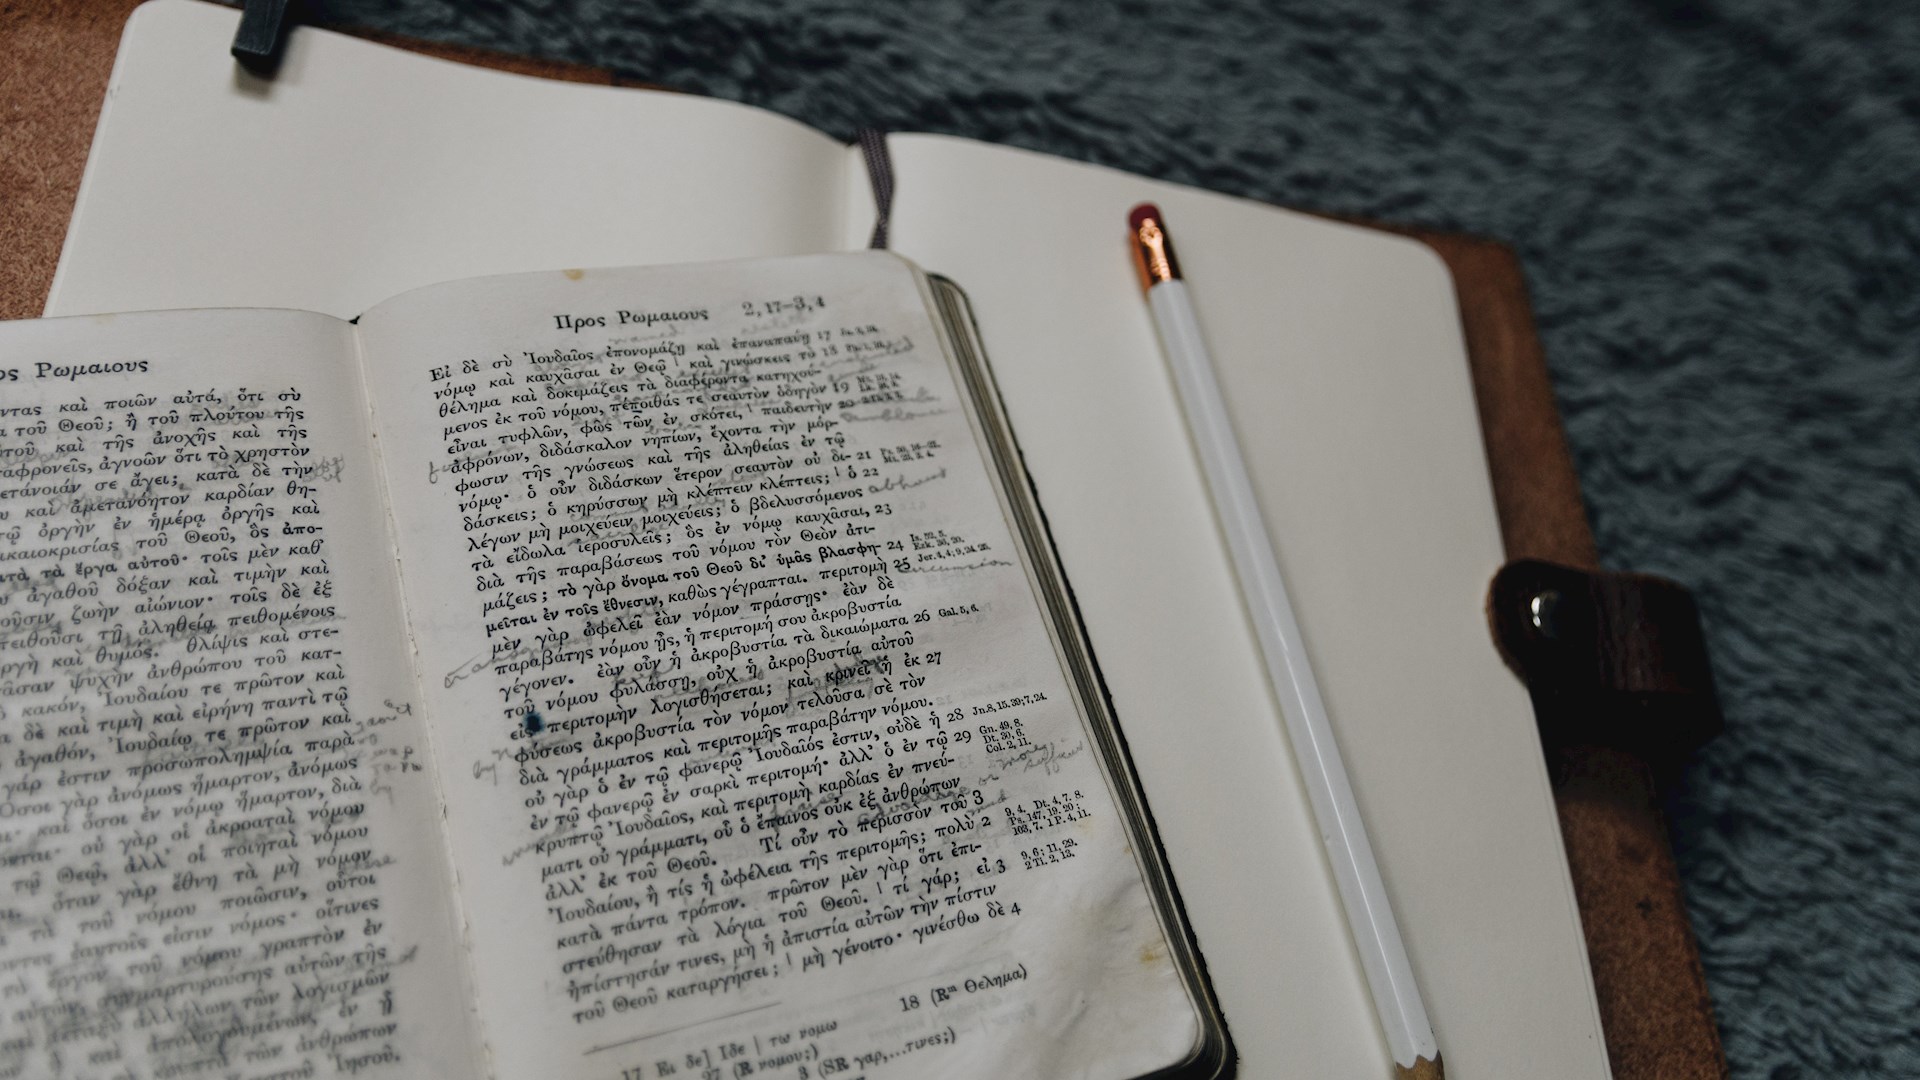 ος Ρωμαιους
ντας καὶ ποιῶν αὐτά, ὅτι σὺ
τοῦ Θεοῦ; ἢ τοῦ πλούτου τῆς
τοῦ καὶ τῆς ἀνοχῆς καὶ τῆς
ταφρονεῖς, ἀγνοῶν ὅτι τὸ χρηστὸν
ετάνοιάν σε ἄγει; κατὰ δὲ τὴν
καὶ ἀμετανόητον καρδίαν θη-
ὀργὴν ἐν ἡμέρᾳ ὀργῆς καὶ
ικαιοκρισίας τοῦ Θεοῦ, ὃς ἀπο-
ατὰ τὰ ἔργα αὐτοῦ· τοῖς μὲν καθ'
ἀγαθοῦ δόξαν καὶ τιμὴν καὶ
οῦσιν ζωὴν αἰώνιον· τοῖς δὲ ἐξ
πειθοῦσι τῇ ἀληθείᾳ πειθομένοις
ργὴ καὶ θυμός. θλῖψις καὶ στε-
ᾶσαν ψυχὴν ἀνθρώπου τοῦ κατ-
κακόν, Ἰουδαίου τε πρῶτον καὶ
δὲ καὶ τιμὴ καὶ εἰρήνη παντὶ τῷ
ἀγαθόν, Ἰουδαίῳ τε πρῶτον καὶ
γάρ ἐστιν προσωπολημψία παρὰ
Ὅσοι γὰρ ἀνόμως ἥμαρτον, ἀνόμως
καὶ ὅσοι ἐν νόμῳ ἥμαρτον, διὰ
οὐ γὰρ οἱ ἀκροαταὶ νόμου
τῷ Θεῷ, ἀλλ' οἱ ποιηταὶ νόμου
ὅταν γὰρ ἔθνη τὰ μὴ νόμον
τὰ τοῦ νόμου ποιῶσιν, οὗτοι
ἑαυτοῖς εἰσιν νόμος· οἵτινες
τὸ ἔργον τοῦ νόμου γραπτὸν ἐν
συμμαρτυρούσης αὐτῶν τῆς
μεταξὺ ἀλλήλων τῶν λογισμῶν
καὶ ἀπολογουμένων, ἐν ᾗ
κρυπτὰ τῶν ἀνθρώπων
Ἰησοῦ.
Προς Ρωμαιους 2, 17–3, 4
Εἰ δὲ σὺ Ἰουδαῖος ἐπονομάζῃ καὶ ἐπαναπαύῃ 17
νόμῳ καὶ καυχᾶσαι ἐν Θεῷ | καὶ γινώσκεις τὸ 18
θέλημα καὶ δοκιμάζεις τὰ διαφέροντα κατηχού-
μενος ἐκ τοῦ νόμου, πέποιθάς τε σεαυτὸν ὁδηγὸν 19
εἶναι τυφλῶν, φῶς τῶν ἐν σκότει, | παιδευτὴν 20
ἀφρόνων, διδάσκαλον νηπίων, ἔχοντα τὴν μόρ-
φωσιν τῆς γνώσεως καὶ τῆς ἀληθείας ἐν τῷ
νόμῳ· ὁ οὖν διδάσκων ἕτερον σεαυτὸν οὐ δι- 21
δάσκεις; ὁ κηρύσσων μὴ κλέπτειν κλέπτεις; | ὁ 22
λέγων μὴ μοιχεύειν μοιχεύεις; ὁ βδελυσσόμενος abhors
τὰ εἴδωλα ἱεροσυλεῖς; ὃς ἐν νόμῳ καυχᾶσαι, 23
διὰ τῆς παραβάσεως τοῦ νόμου τὸν Θεὸν ἀτι-
μάζεις; τὸ γὰρ ὄνομα τοῦ Θεοῦ δι' ὑμᾶς βλασφη- 24 Is. 52, 5. Ezk. 36, 20.
μεῖται ἐν τοῖς ἔθνεσιν, καθὼς γέγραπται. περιτομὴ 25 Jer. 4, 4; 9, 24. 25.
μὲν γὰρ ὠφελεῖ ἐὰν νόμον πράσσῃς· ἐὰν δὲ
παραβάτης νόμου ᾖς, ἡ περιτομή σου ἀκροβυστία
γέγονεν. ἐὰν οὖν ἡ ἀκροβυστία τὰ δικαιώματα 26 Gal. 5, 6.
τοῦ νόμου φυλάσσῃ, οὐχ ἡ ἀκροβυστία αὐτοῦ
εἰς περιτομὴν λογισθήσεται; καὶ κρινεῖ ἡ ἐκ 27
φύσεως ἀκροβυστία τὸν νόμον τελοῦσα σὲ τὸν
διὰ γράμματος καὶ περιτομῆς παραβάτην νόμου.
οὐ γὰρ ὁ ἐν τῷ φανερῷ Ἰουδαῖός ἐστιν, οὐδὲ ἡ 28 Jn. 8, 15. 39; 7, 24.
ἐν τῷ φανερῷ ἐν σαρκὶ περιτομή· ἀλλ' ὁ ἐν τῷ 29 Gn. 49, 8. Dt. 30, 6. Col. 2, 11.
κρυπτῷ Ἰουδαῖος, καὶ περιτομὴ καρδίας ἐν πνεύ-
ματι οὐ γράμματι, οὗ ὁ ἔπαινος οὐκ ἐξ ἀνθρώπων
ἀλλ' ἐκ τοῦ Θεοῦ. Τί οὖν τὸ περισσὸν τοῦ 3
Ἰουδαίου, ἢ τίς ἡ ὠφέλεια τῆς περιτομῆς; πολὺ 2 9, 4. Dt. 4, 7. 8. Ps. 147, 19. 20; 103, 7. 1 P. 4, 11.
κατὰ πάντα τρόπον. πρῶτον μὲν γὰρ ὅτι ἐπι-
στεύθησαν τὰ λόγια τοῦ Θεοῦ. | τί γάρ; εἰ 3 9, 6; 11, 29. 2 Ti. 2, 13.
ἠπίστησάν τινες, μὴ ἡ ἀπιστία αὐτῶν τὴν πίστιν
τοῦ Θεοῦ καταργήσει; | μὴ γένοιτο· γινέσθω δὲ 4
18 (Rᵐ Θελημα)
17 Ει δε] Ιδε | τω νομω
27 (R νομου;)
3 (SR γαρ,...τινες;)